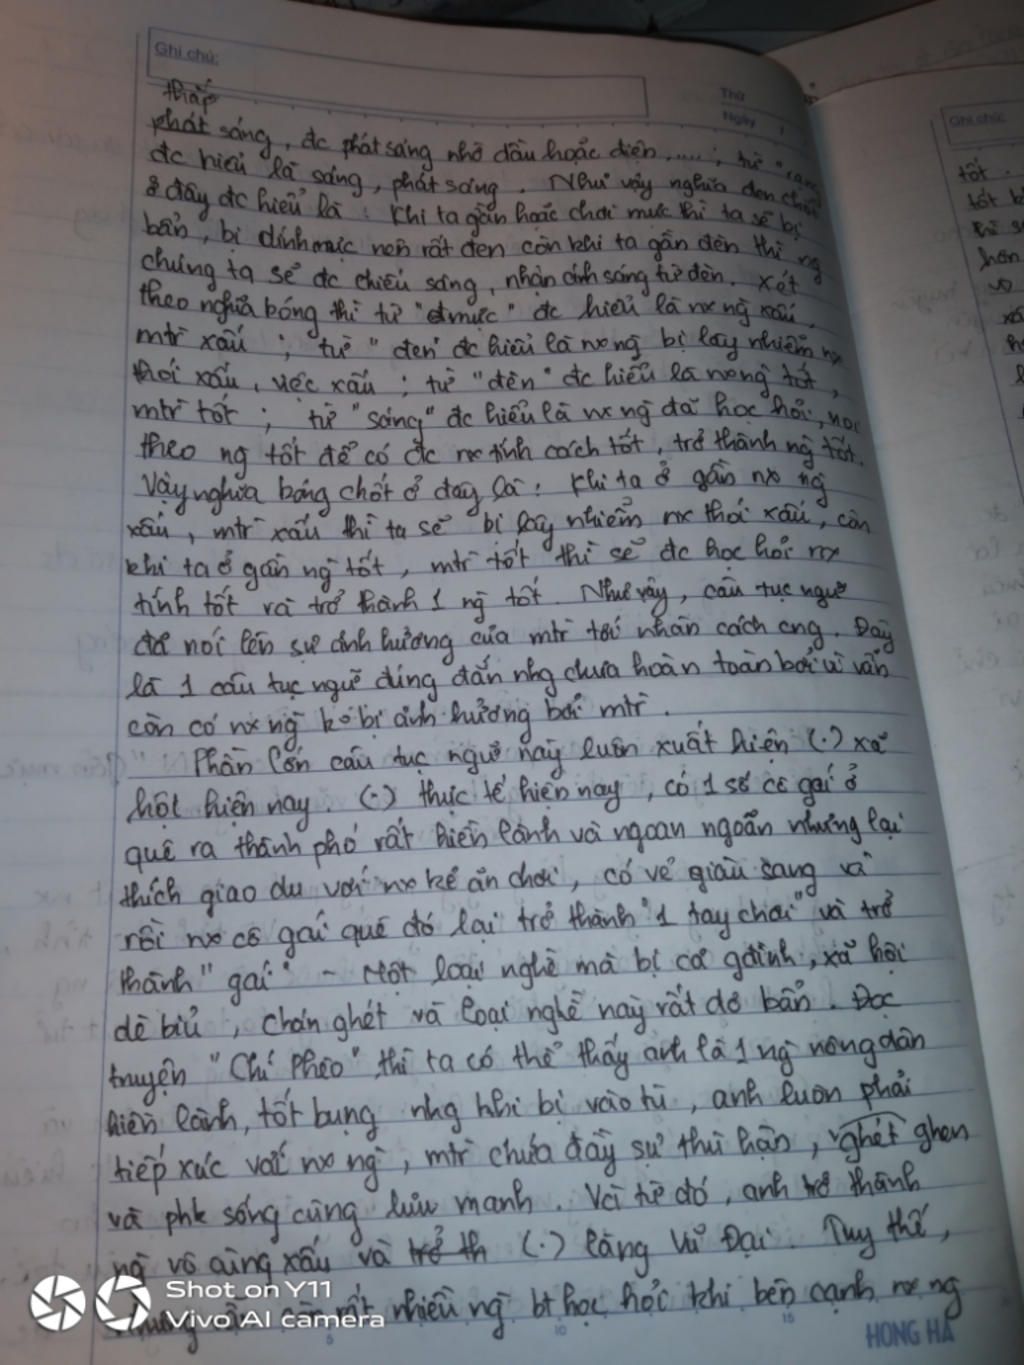 Ghi chú:
Thứ
Ngày
thắp
phát sáng, đc phát sáng nhờ dầu hoặc điện,....; từ "rạng
đc hiểu là sáng, phát sáng. Như vậy nghĩa đen
ở đây đc hiểu là: Khi ta gần hoặc chơi mực thì ta sẽ bị
bẩn, bị dính mực nên rất đen còn khi ta gần đèn thì
chúng ta sẽ đc chiếu sáng, nhận ánh sáng từ đèn. Xét
theo nghĩa bóng thì từ "mực" đc hiểu là nx ng xấu,
mtr xấu; từ "đen" đc hiểu là nx ng bị lây nhiễm nx
thói xấu, việc xấu; từ "đèn" đc hiểu là nx ng tốt,
mtr tốt; từ "sáng" đc hiểu là nx ng đã học hỏi, noi
theo ng tốt để có đc nx tính cách tốt, trở thành ng tốt.
Vậy nghĩa bóng chốt ở đây là: Khi ta ở gần nx ng
xấu, mtr xấu thì ta sẽ bị lây nhiễm nx thói xấu, còn
khi ta ở gần ng tốt, mtr tốt thì sẽ đc học hỏi nx
tính tốt và trở thành 1 ng tốt. Như vậy, câu tục ngữ
đã nói lên sự ảnh hưởng của mtr tới nhân cách cng. Đây
là 1 câu tục ngữ đúng đắn nhg chưa hoàn toàn bởi vì vẫn
còn có nx ng ko bị ảnh hưởng bởi mtr.
Phần lớn câu tục ngữ này luôn xuất hiện (.) xã
hội hiện nay. (.) thực tế hiện nay, có 1 số cô gái ở
quê ra thành phố rất hiền lành và ngoan ngoãn nhưng lại
thích giao du với nx kẻ ăn chơi, có vẻ giàu sang và
rồi nx cô gái quê đó lại trở thành "1 tay chơi" và trở
thành "gái" - Một loại nghề mà bị cả gđình, xã hội
dè bỉu, chán ghét và loại nghề này rất dơ bẩn. Đọc
truyện "Chí Phèo" thì ta có thể thấy anh là 1 ng nông dân
hiền lành, tốt bụng nhg khi bị vào tù, anh luôn phải
tiếp xúc với nx ng, mtr chứa đầy sự thù hận, ghét ghen
và phk sống cùng lưu manh. Và từ đó, anh trở thành
ng vô cùng xấu và trở th (.) làng Vũ Đại. Tuy thế,
nhiều ng bt học hỏi khi bên cạnh nx ng
5 10 15
HONG HA
Ghi chú:
tốt.
Shot on Y11
Vivo AI camera